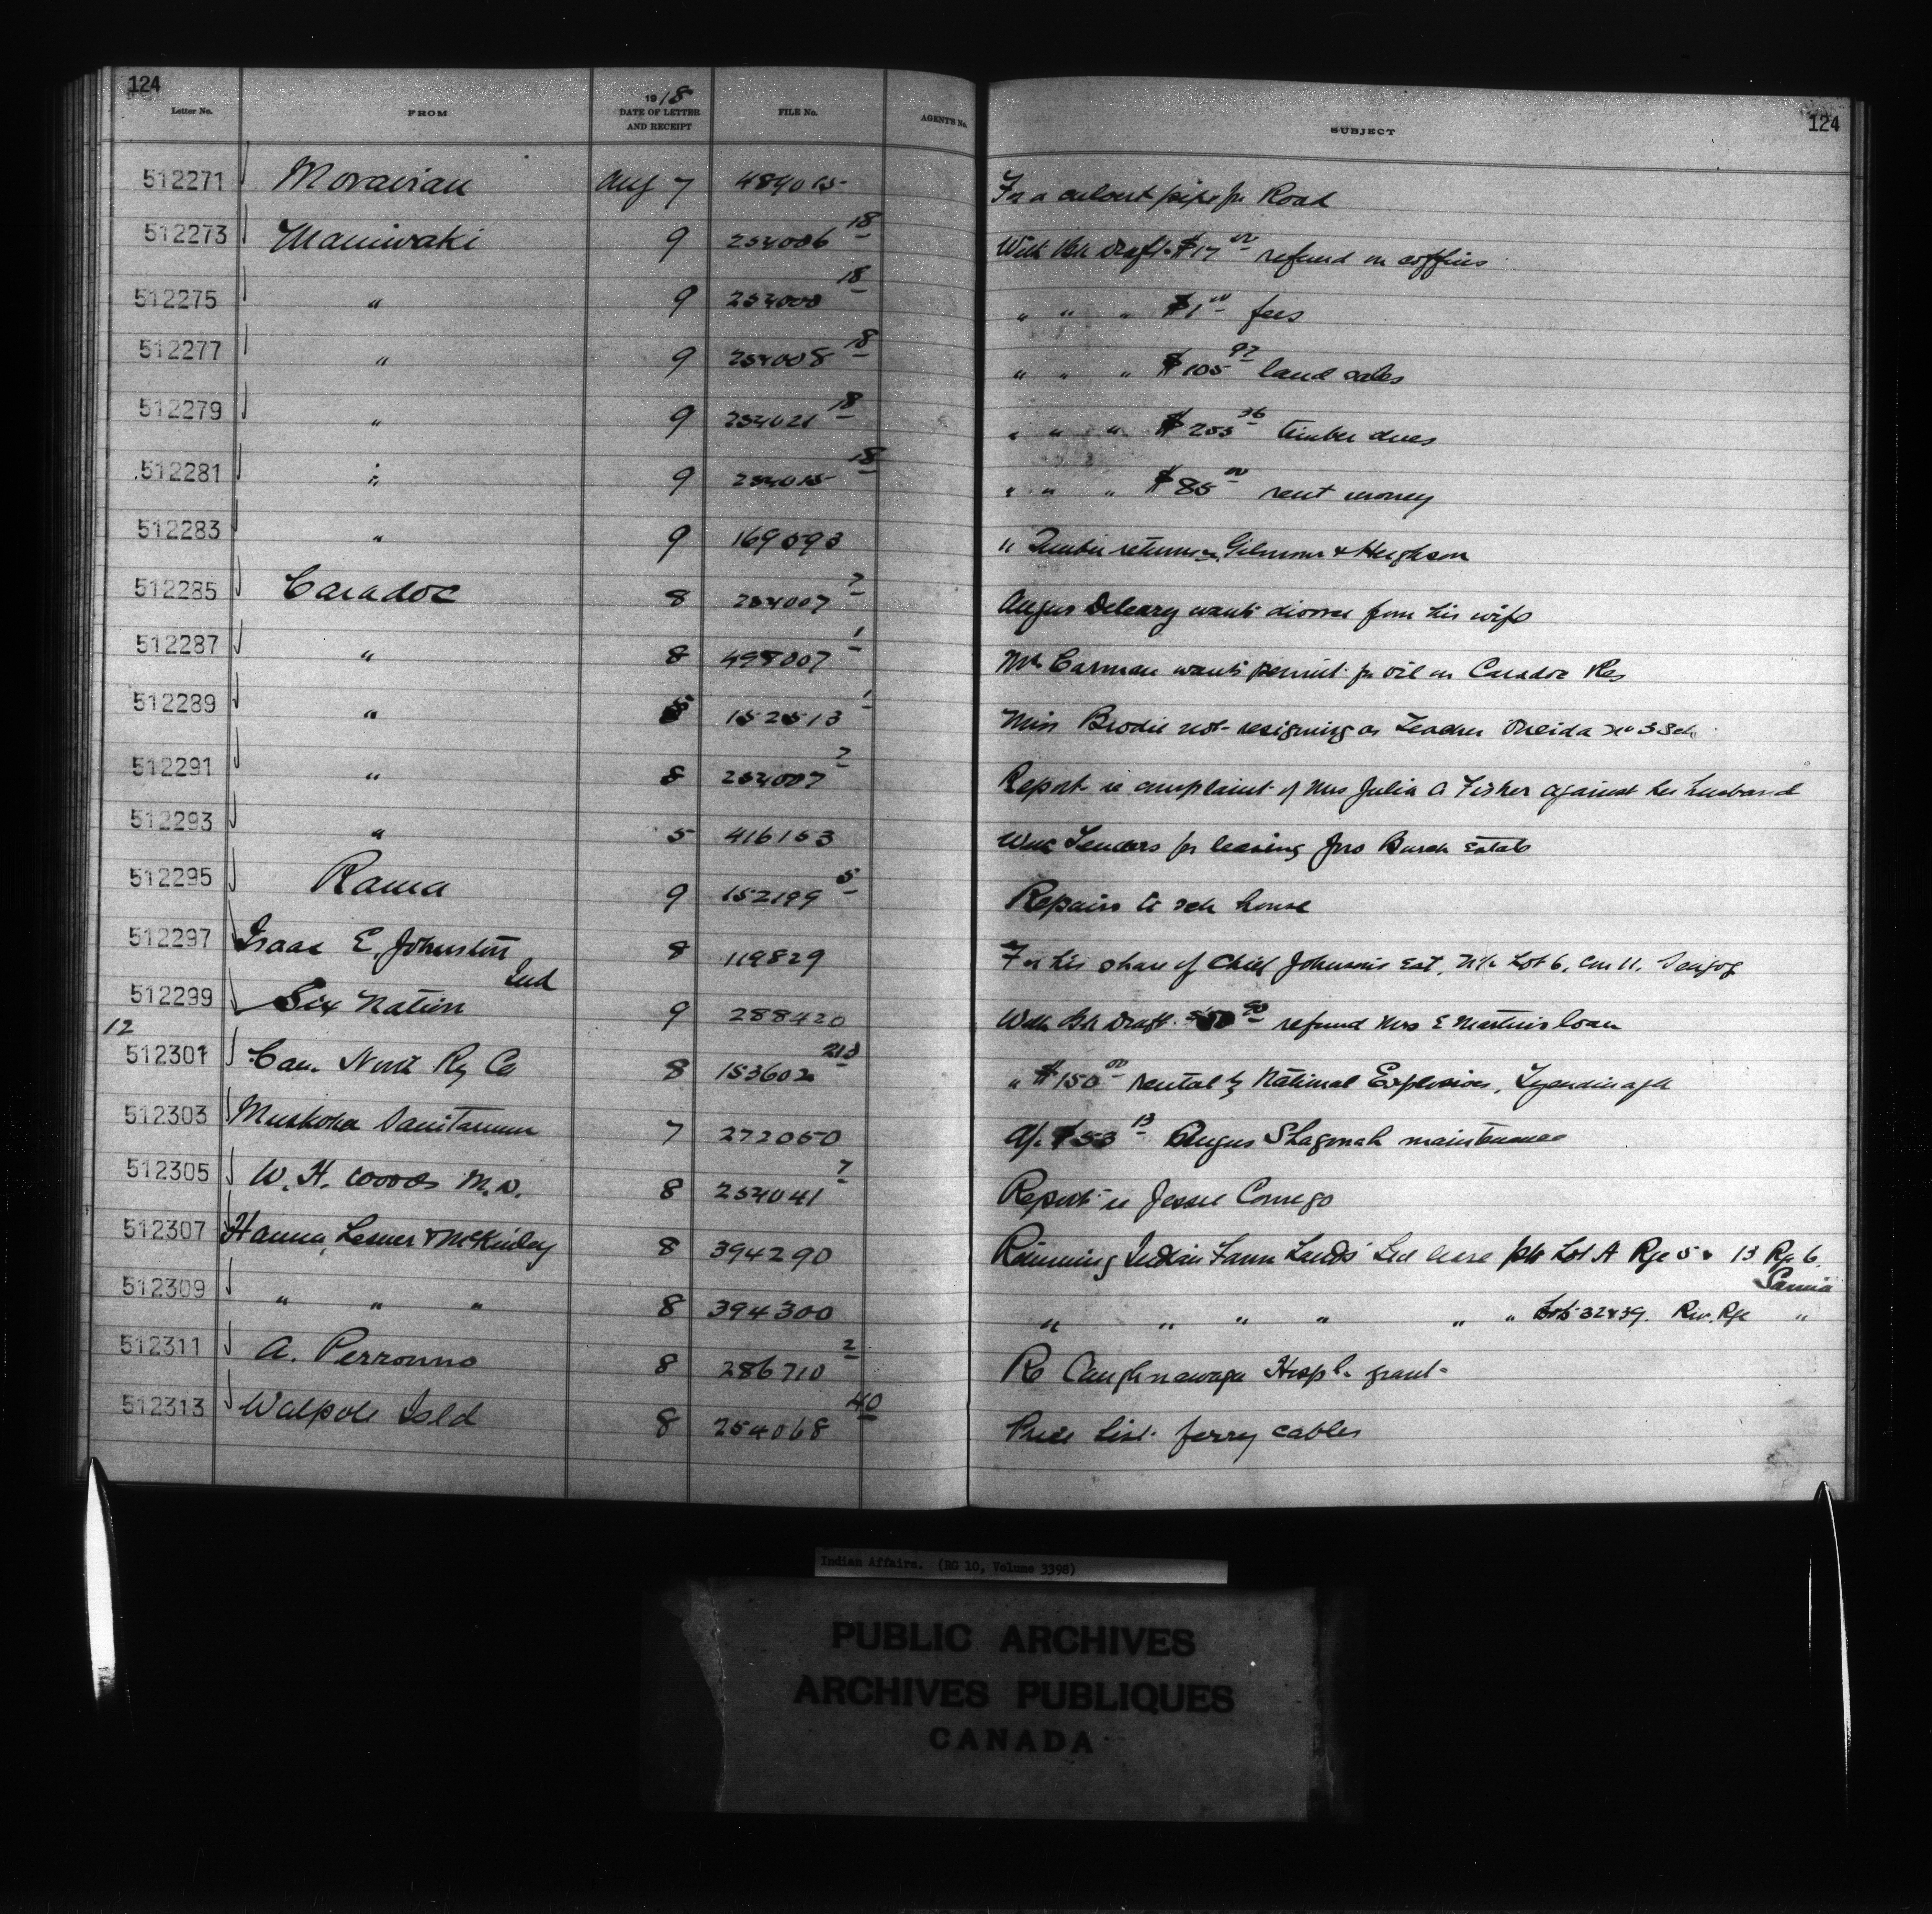 124
Letter No. FROM 1918 DATE OF LETTER AND RECEIPT FILE No. AGENT'S No. SUBJECT 124
512271 Moravian Aug 7 484015 For a culvert pipe for Road
512273 Maniwaki 9 254006 18 With Bk Draft $17 00 refund on coffins
512275 " 9 254000 18 " " " $1 00 fees
512277 " 9 254008 18 " " " $105 97 land sales
512279 " 9 254021 18 " " " $253 36 timber dues
512281 " 9 254015 18 " " " $85 00 rent money
512283 " 9 169593 " Timber returns Gilmour & Hughson
512285 Caradoc 8 254007 7 Angus Deleary wants divorce from his wife
512287 " 8 498007 1 Mr Carman wants permit for oil on Caradoc Res
512289 " 152513 1 Miss Brodie not resigning as Teacher Oneida No 3 Sch
512291 " 8 254007 7 Report re complaint of Mrs Julia A Fisher against her husband
512293 " 5 416153 With Tenders for leasing Jno Burch Estate
512295 Rama 9 152199 5 Repairs to sch house
512297 Isaac E. Johnston 8 119829 For his share of Chief Johnson's Est, N½ Lot 6, Con 11, Scugog
Ind
512299 Six Nation 9 288420 With Bk Draft refund Mrs E Martin's loan
12
512301 Can. North Ry Co 8 153602 213 " $150 00 rental by National Explosives, Tyendinaga
512303 Muskoka Sanitarium 7 272050 A/c $53 13 Angus Shagonah maintenance
512305 W. H. Woods M.D. 8 254041 7 Report re Jesse Comego
512307 Hanna, Lesuer & McKinley 8 394290 Rimming Indian Farm Lands Ltd lease pts Lot A Rge 5 & 13 Rge 6
Sarnia
512309 " " " 8 394300 " " " " " " Lots 32 & 39. Riv. Rge "
512311 A. Perronno 8 286710 2 Re Caughnawaga Hospl. grant
512313 Walpole Isld 8 254068 40 Price List ferry cables
Indian Affairs. (RG 10, Volume 3398)
PUBLIC ARCHIVES
ARCHIVES PUBLIQUES
CANADA